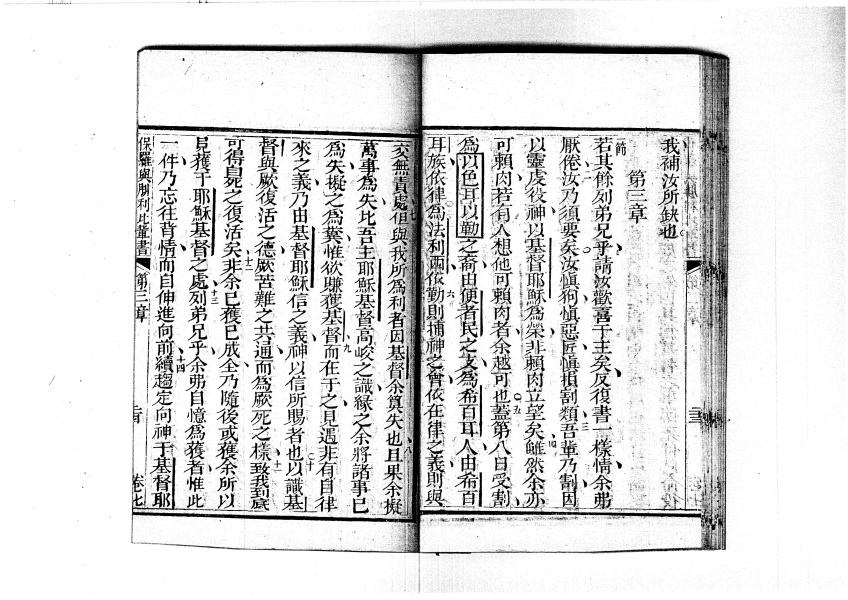 我補汝所缺也
第三章
節 若其餘列弟兄乎請汝歡喜于主矣反復書一樣情余弗
厭倦汝乃須要矣 二 汝慎狗慎惡匠慎損割類 三 吾輩乃割因
以靈虔役神以基督耶穌為榮非賴肉立望矣 四 雖然余亦
可賴肉若有人想他可賴肉者余越可也 五 蓋第八日受割
為以色耳以勒之裔由便者民之支為希百耳人由希百
耳族依律為法利西 六 依勤則捕神之會依在律之義則與
交無責處 七 但與我所為利者因基督余算失也 八 且果余擬
萬事為失比吾主耶穌基督高峻之識緣之余將諸事已
為失擬之為糞惟欲賺獲基督 九 而在于之見遇非有自律
來之義乃由基督耶穌信之義神以信所賜者也 十 以識基
督與厥復活之德厥苦難之共通而為厥死之樣 十一 致我到底
可得自死之復活矣 十二 非余已獲已成全乃隨後或獲余所以
見獲于耶穌基督之處 十三 列弟兄乎余弗自憶為獲者惟此
一件乃忘往背情而自伸進向前 十四 續趨定向神于基督耶
保羅與腓利比輩書 第三章 卷七